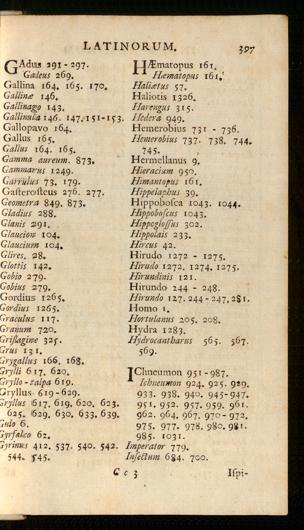 LATINORUM. 397
GAdus 291-297.
Galeus 269.
Gallina 164. 165. 170.
Gallinæ 146.
Gallinago 143.
Gallinula 146. 147. 151-153.
Gallopavo 164.
Gallus 165.
Gallus 164. 165.
Gamma aureum. 873.
Gammarus 1249.
Garrulus 73. 179.
Gasterosteus 276. 277.
Geometra 849. 873.
Gladius 288.
Glanis 291.
Glaucion 104.
Glaucium 104.
Glires, 28.
Glottis 142.
Gobio 279.
Gobius 279.
Gordius 1265.
Gordius 1265.
Graculus 117.
Granum 720.
Grislagine 325.
Grus 131.
Grygallus 166. 168.
Grylli 617. 620.
Gryllo-talpa 619.
Gryllus 619-629.
Gryllus 617. 619. 620. 623.
625. 629. 630. 633. 639.
Gulo 6.
Gyrfalco 62.
Gyrinus 412. 537. 540. 542.
544. 545.
HÆmatopus 161.
Hæmatopus 161.
Haliætus 57.
Haliotis 1326.
Harengus 315.
Hedera 949.
Hemerobius 731 - 736.
Hemerobius 737. 738. 744.
745.
Hermellanus 9.
Hieracium 950.
Himantopus 161.
Hippelaphus 39.
Hippobosca 1043. 1044.
Hippoboscus 1043.
Hippoglossus 302.
Hippolais 233.
Hircus 42.
Hirudo 1272 - 1275.
Hirudo 1272. 1274. 1275.
Hirundinis 121.
Hirundo 244 - 248.
Hirundo 127. 244-247. 281.
Homo 1.
Hortulanus 205. 208.
Hydra 1283.
Hydrocantharus 565. 567.
569.
IChneumon 951-987.
Ichneumon 924. 925. 929.
933. 938. 940. 945-947.
951. 952. 957. 959. 961.
962. 964. 967. 970-972.
975. 977. 978. 980. 981.
985. 1031.
Imperator 779.
Insectum 684. 700.
Cc 3 Ispi-